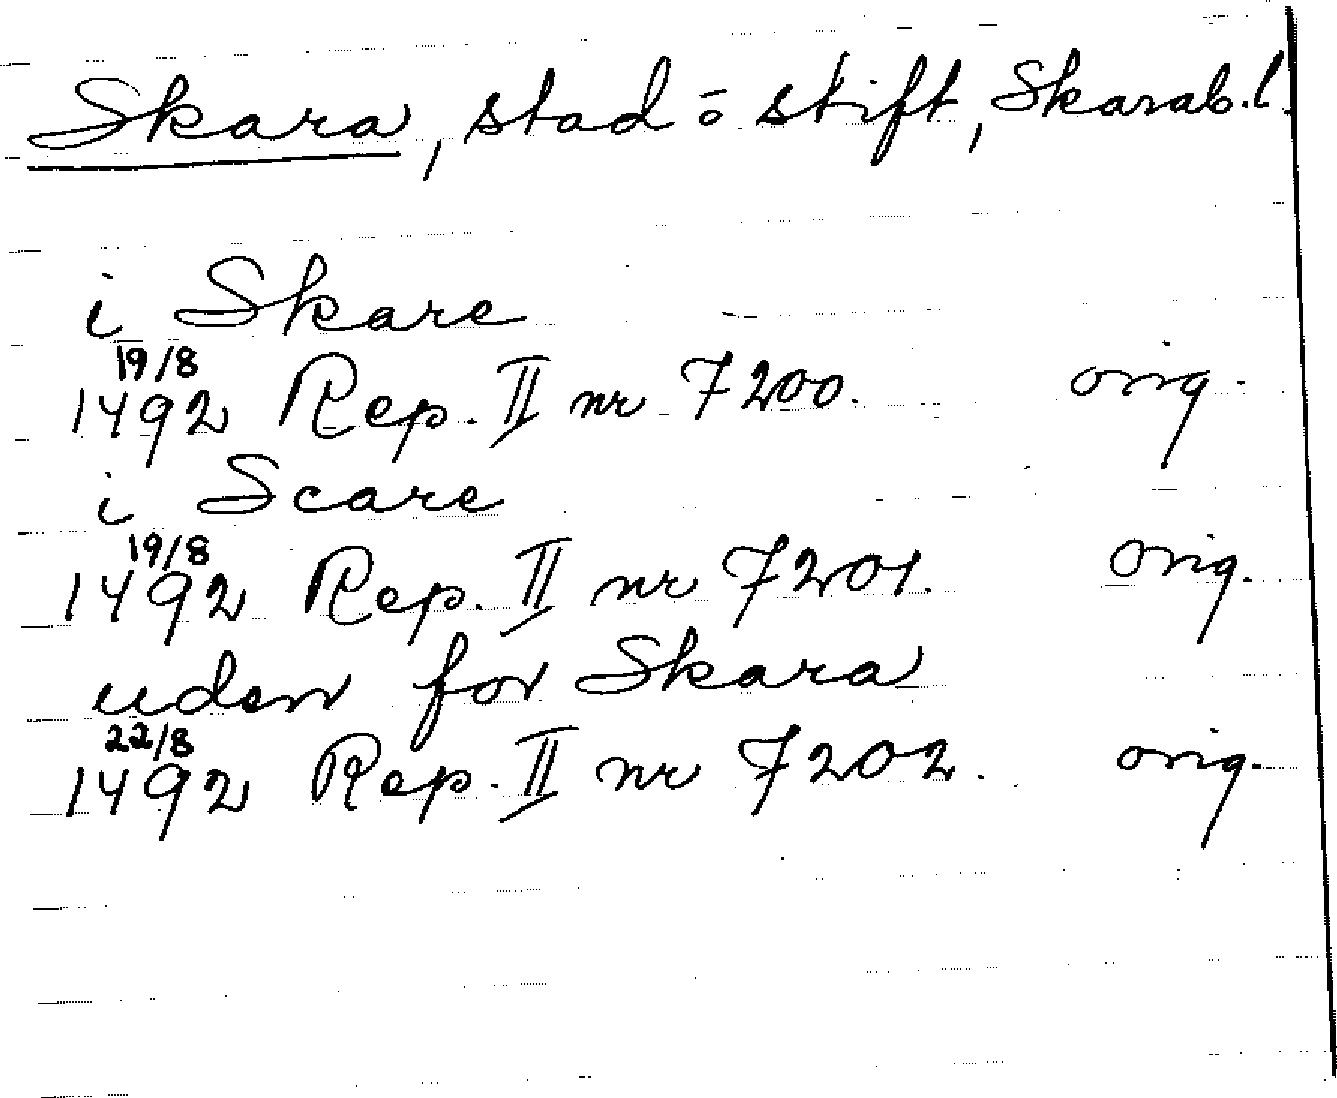 Skara, stad o stift, Skarab.l.
i Skare
19/8
1492 Rep. II nr 7200. orig.
i Scare
19/8
1492 Rep. II nr 7201. Orig.
uden for Skara
22/8
1492 Rep. II nr 7202. orig.